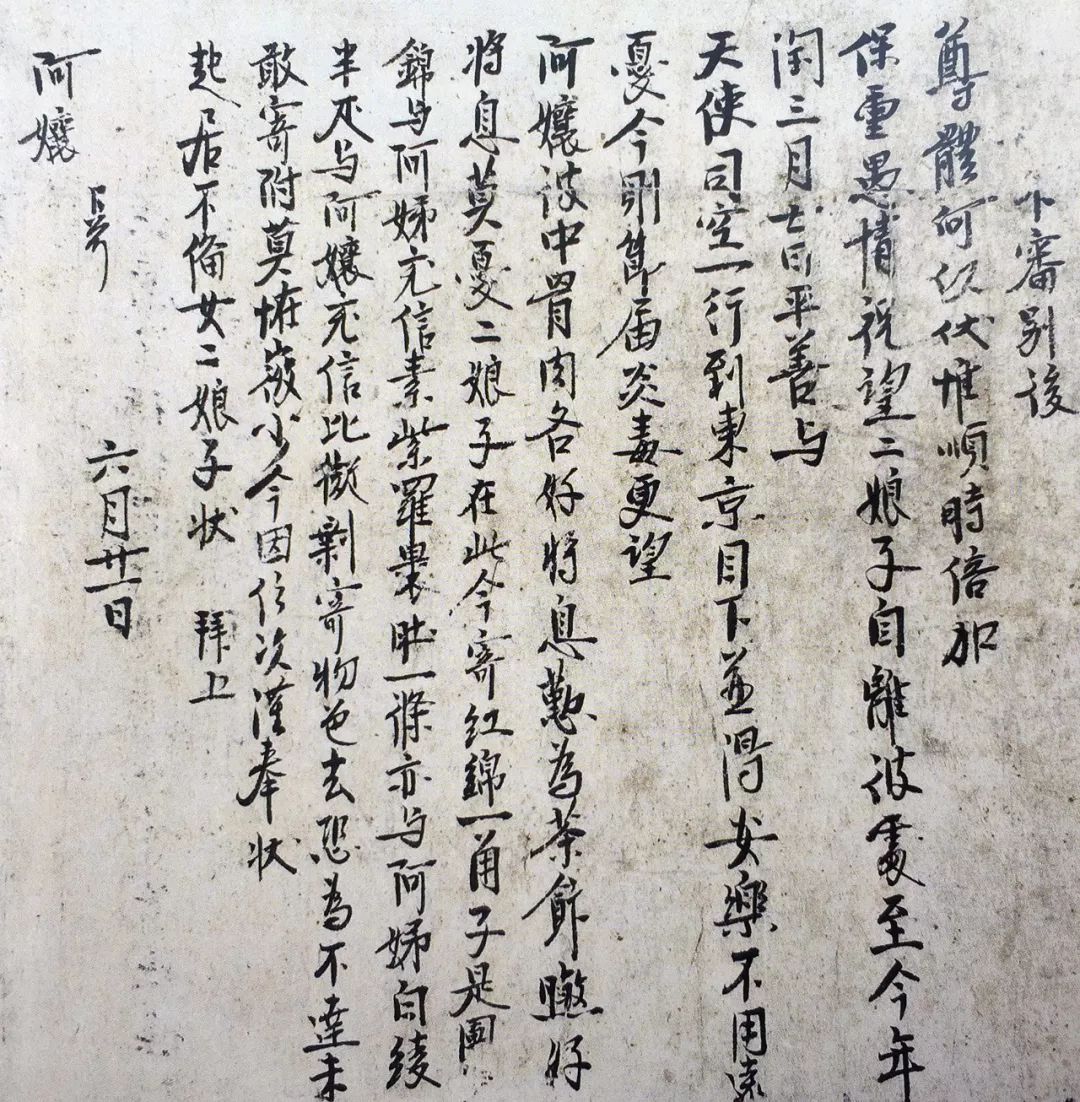 不審別後
尊體何似伏惟順時倍加
保重愚情祝望二娘子自離彼處至今年
閏三月七日平善与
天使司空一行到東京目下並得安樂不用遠
憂今則節届炎毒更望
阿孃彼中骨肉各好將息懃為茶飰煞好
將息莫憂二娘子在此今寄紅錦一角子是團
錦与阿姊充信素紫羅裹肚一條亦与阿姊白綾
半疋与阿孃充信比擬剩寄物色去恐為不達未
敢寄附莫怪微少今因信次謹奉状
起居不備女二娘子状 拜上
六月廿一日
阿孃